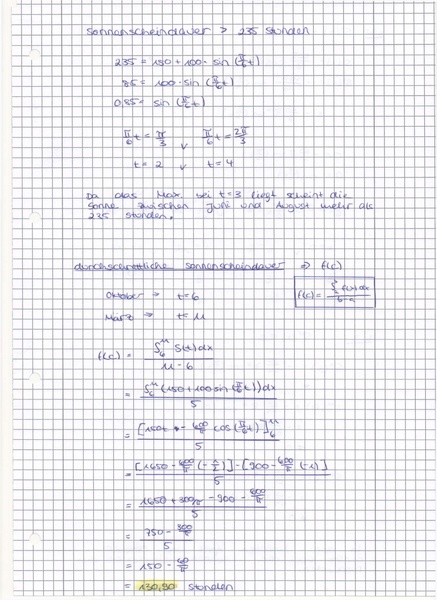 Sonnenscheindauer > 235 Stunden
235 = 150 + 100 · sin (π/6 t)
85 = 100 · sin (π/6 t)
0.85 = sin (π/6 t)
π/6 t = π/3 ∨ π/6 t = 2π/3
t = 2 ∨ t = 4
Da das Max. bei t=3 liegt scheint die
Sonne zwischen Juni und August mehr als
235 Stunden.
durchschnittliche Sonnenscheindauer ⇒ f(c)
f(c) = ∫ f(x) dx / b-a
Oktober → t=6
März → t=11
f(c) = ∫₆¹¹ S(t) dx / 11 - 6
= ∫₆¹¹ (150 + 100 sin (π/6 t)) dx / 5
= [150t - 600/π cos (π/6 t)]₆¹¹ / 5
= [1650 - 600/π ( )] - [900 - 600/π (-1)] / 5
= 1650 + 300/π - 900 - 600/π / 5
= 750 - 300/π / 5
= 150 - 60/π
= 130,90 Stunden